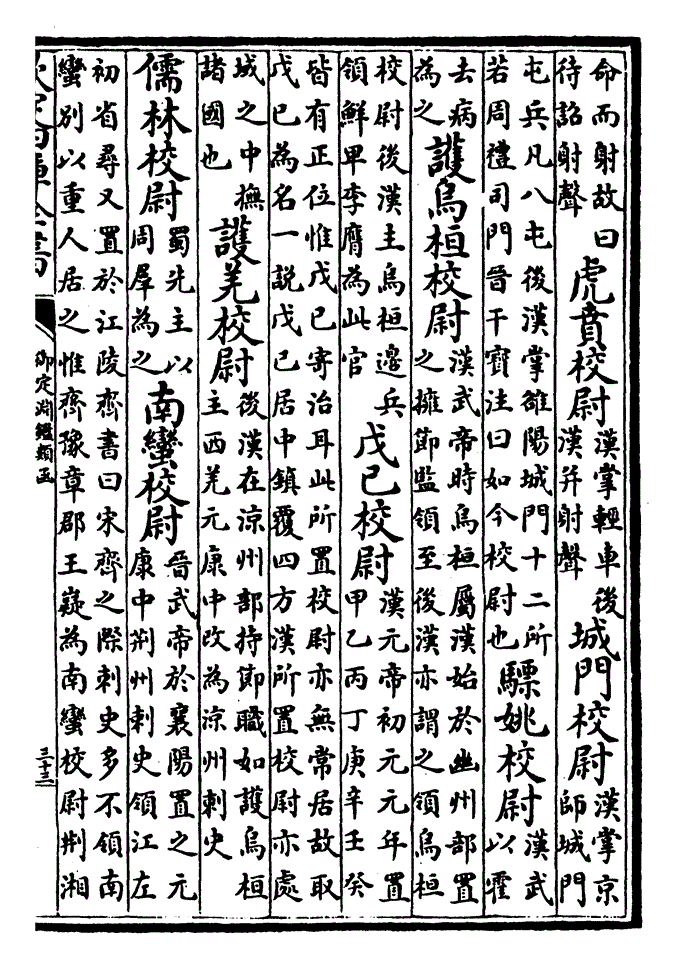 命而射故曰
待詔射聲
虎賁校尉
漢掌輕車後
漢并射聲
城門校尉
漢掌京
師城門
屯兵凡八屯後漢掌雒陽城門十二所
若周禮司門晉干寶注曰如今校尉也
驃姚校尉
漢武
以霍
去病
為之
護烏桓校尉
漢武帝時烏桓屬漢始於幽州部置
之擁節監領至後漢亦謂之領烏桓
校尉後漢主烏桓邊兵
領鮮卑李膺為此官
戊己校尉
漢元帝初元元年置
甲乙丙丁庚辛壬癸
皆有正位惟戊己寄治耳此所置校尉亦無常居故取
戊己為名一說戊己居中鎮覆四方漢所置校尉亦處
城之中撫
諸國也
護羌校尉
後漢在涼州部持節職如護烏桓
主西羌元康中改為涼州刺史
儒林校尉
蜀先主以
周羣為之
南蠻校尉
晉武帝於襄陽置之元
康中荆州刺史領江左
初省尋又置於江陵齊書曰宋齊之際刺史多不領南
蠻別以重人居之惟齊豫章郡王嶷為南蠻校尉荆湘
欽定四庫全書
御定淵鑑類函
三十三